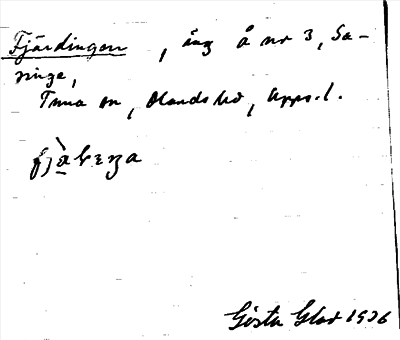 Fjärdingen, äng å nr 3, Sa-
ringe,
Tuna sn, Olands hd, Upps. l.
Gösta Glad 1936